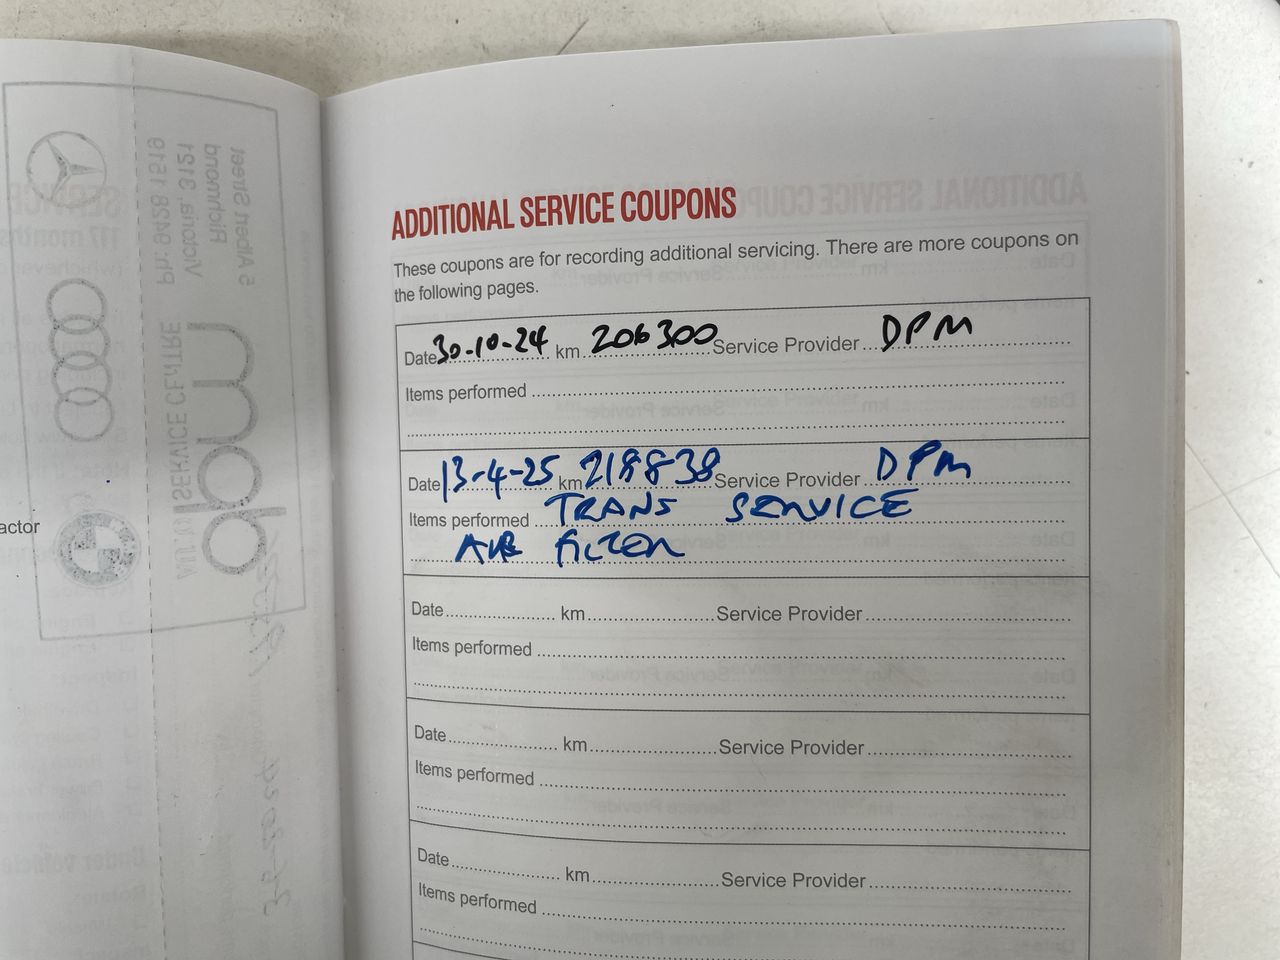 ADDITIONAL SERVICE COUPONS
These coupons are for recording additional servicing. There are more coupons on
the following pages.
Date 30-10-24 km 206300 Service Provider DPM
Items performed
Date 13-4-25 km 218838 Service Provider DPM
Items performed TRANS SERVICE
AIR FILTER
Date km Service Provider
Items performed
Date km Service Provider
Items performed
Date km Service Provider
Items performed
actor
dpm
AUTO SERVICE CENTRE
5 Albert Street
Richmond
Victoria, 3121
Ph: 9428 1519